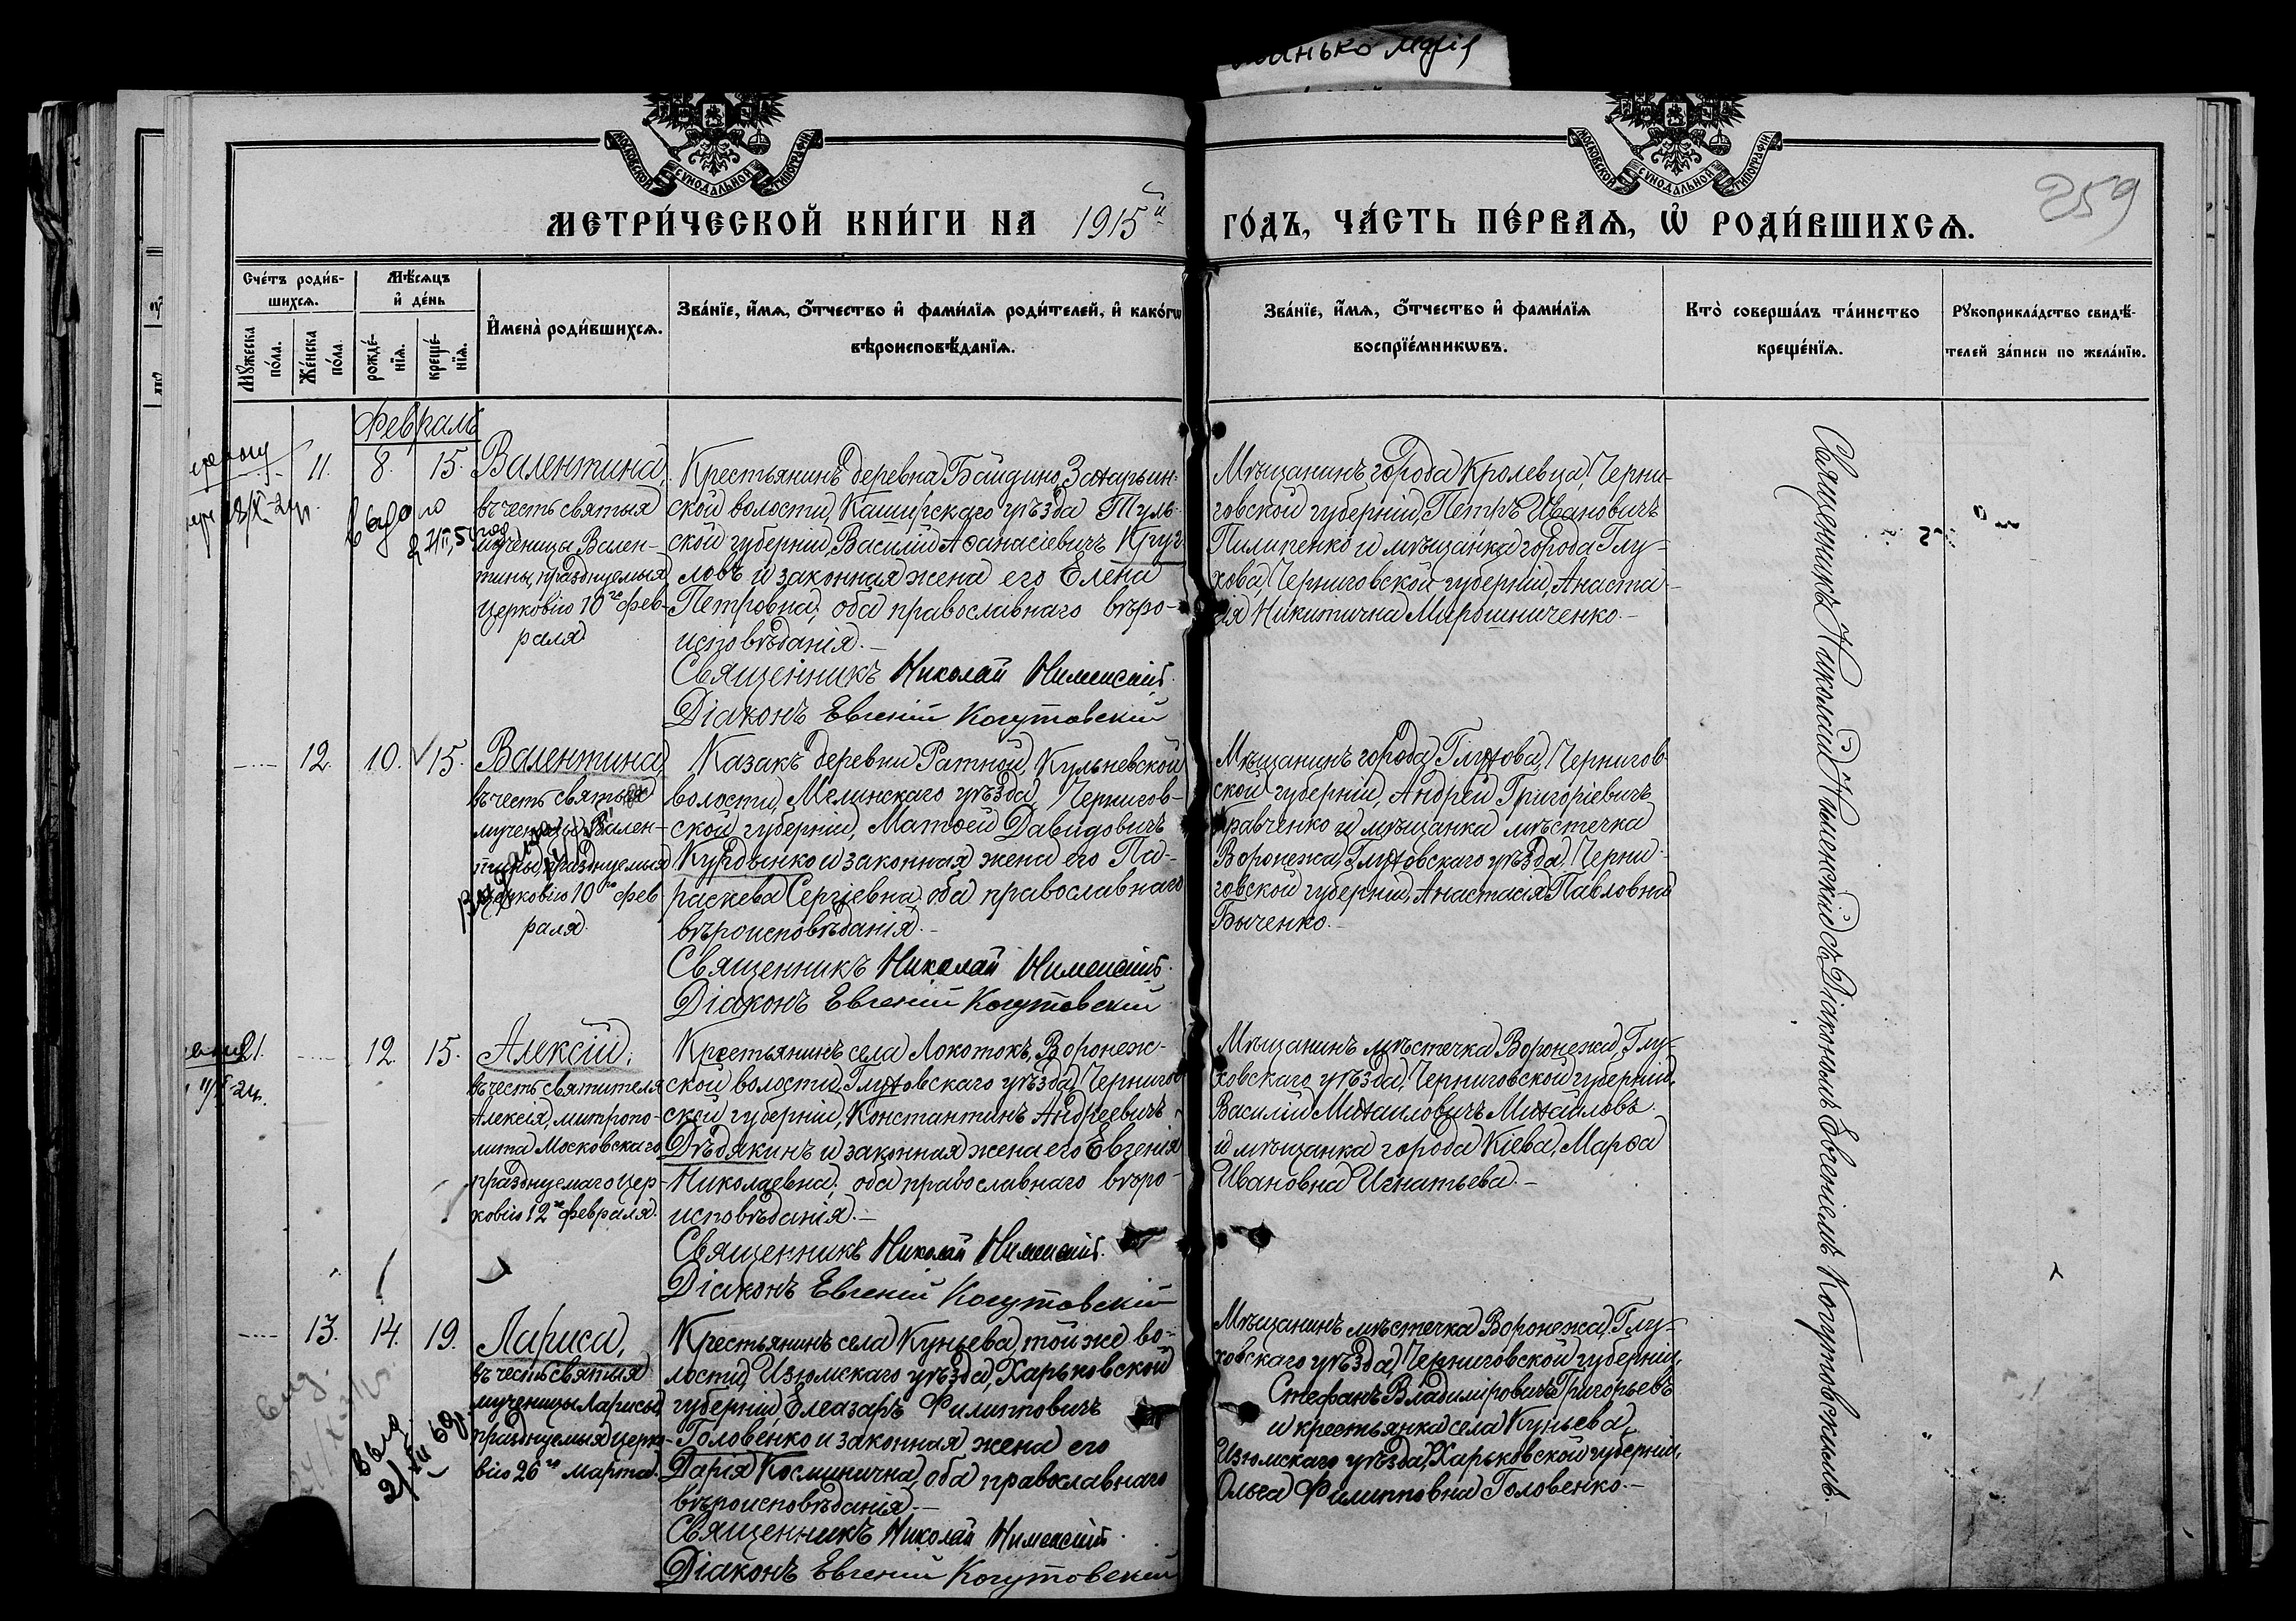 МОСКОВСКОЙ СУНОДАЛЬНОЙ ТИПОГРАФІИ.
МОСКОВСКОЙ СУНОДАЛЬНОЙ ТИПОГРАФІИ.
259
МЕТРИ́ЧЕСКОЙ КНИ́ГИ НА 1915й
ГО́ДЪ, ЧА́СТЬ ПЕ́РВАѦ, Ѡ҆ РОДИ́ВШИХСѦ.
Сче́тъ роди́в-
шихсѧ.
Мѣ́сѧцъ
и҆ де́нь
Мꙋ́жеска по́ла.
Же́нска по́ла.
рожде́-
нїѧ.
креще́-
нїѧ.
И҆мена̀ роди́вшихсѧ.
Зва́нїе, и҆́мѧ, ѻ҆́тчество и҆ фами́лїѧ роди́телей, и҆ како́гѡ
вѣроисповѣ́данїѧ.
Зва́нїе, и҆́мѧ, ѻ҆́тчество и҆ фами́лїѧ
воспрїе́мникѡвъ.
Кто̀ соверша́лъ та́инство
креще́нїѧ.
Рꙋкоприкла́дство свидѣ́-
телей за́писи по жела́нїю.
Февраль
11. 8. 15.
Валентина,
въ честь святыя
мученицы Вален-
тины, празднуемыя
Церковію 10го фев-
раля
Крестьянинъ деревни Байдино, Захарьин-
ской волости, Каширскаго уѣзда Туль-
ской губерніи, Василій Аѳанасіевичъ Круг-
ловъ и законная жена его Елена
Петровна, оба православнаго вѣро-
исповѣданія.-
Священникъ Николай
Діаконъ Евгеній Когутовскій
Мѣщанинъ города Кролевца, Черни-
говской губерніи, Петръ Ивановичъ
Пилипенко и мѣщанка города Глу-
хова, Черниговской губерніи, Анаста-
сія Никитична Мирошниченко.-
12. 10. 15.
Валентина
въ честь святыя
мученицы Вален-
тины, празднуемыя
Церковію 10го фев
раля.
Казакъ деревни Ратной, Кульневской
волости, Мглинскаго уѣзда, Чернигов-
ской губерніи, Матѳей Давидовичъ
и законная жена его Па-
раскева Сергіевна, оба православнаго
вѣроисповѣданія.-
Священникъ Николай
Діаконъ Евгеній Когутовскій
Мѣщанинъ города Глухова, Чернигов-
ской губерніи, Андрей Григоріевичъ
Кравченко и мѣщанка мѣстечка
Воронежа, Глуховскаго уѣзда, Черни-
говской губерніи, Анастасія Павловна
Быченко.-
21. 12. 15.
Алексій,
въ честь святителя
Алексія, митропо-
лита Московскаго
празднуемаго Цер-
ковію 12го февраля.
Крестьянинъ села Локотокъ, Воронеж-
ской волости, Глуховскаго уѣзда, Чернигов
ской губерніи, Константинъ Андреевичъ
Дѣдякинъ и законная жена его Евгенія
Николаевна, оба православнаго вѣро-
исповѣданія.-
Священникъ Николай
Діаконъ Евгеній Когутовскій
Мѣщанинъ мѣстечка Воронежа, Глу-
ховскаго уѣзда, Черниговской губерніи,
Василій Михаиловичъ Михайловъ
и мѣщанка города Кіева, Марѳа
Ивановна Игнатьева.-
13. 14. 19.
Лариса,
въ честь святыя
мученицы Ларисы,
празднуемыя Церко-
вію 26го Марта.
Крестьянинъ села Куньева, той же во-
лости, Изюмскаго уѣзда, Харьковской
губерніи, Елеазаръ Филипповичъ
Головенко и законная жена его
Дарія Косминична, оба православнаго
вѣроисповѣданія.-
Священникъ Николай
Діаконъ Евгеній Когутовскій
Мѣщанинъ мѣстечка Воронежа, Глу-
ховскаго уѣзда, Черниговской губерніи,
Стефанъ Владиміровичъ Григорьевъ
и крестьянка села Куньева,
Изюмскаго уѣзда, Харьковской губерніи,
Ольга Филипповна Головенко.-
Священникъ Николай съ Діакономъ Евгеніемъ Когутовскимъ.